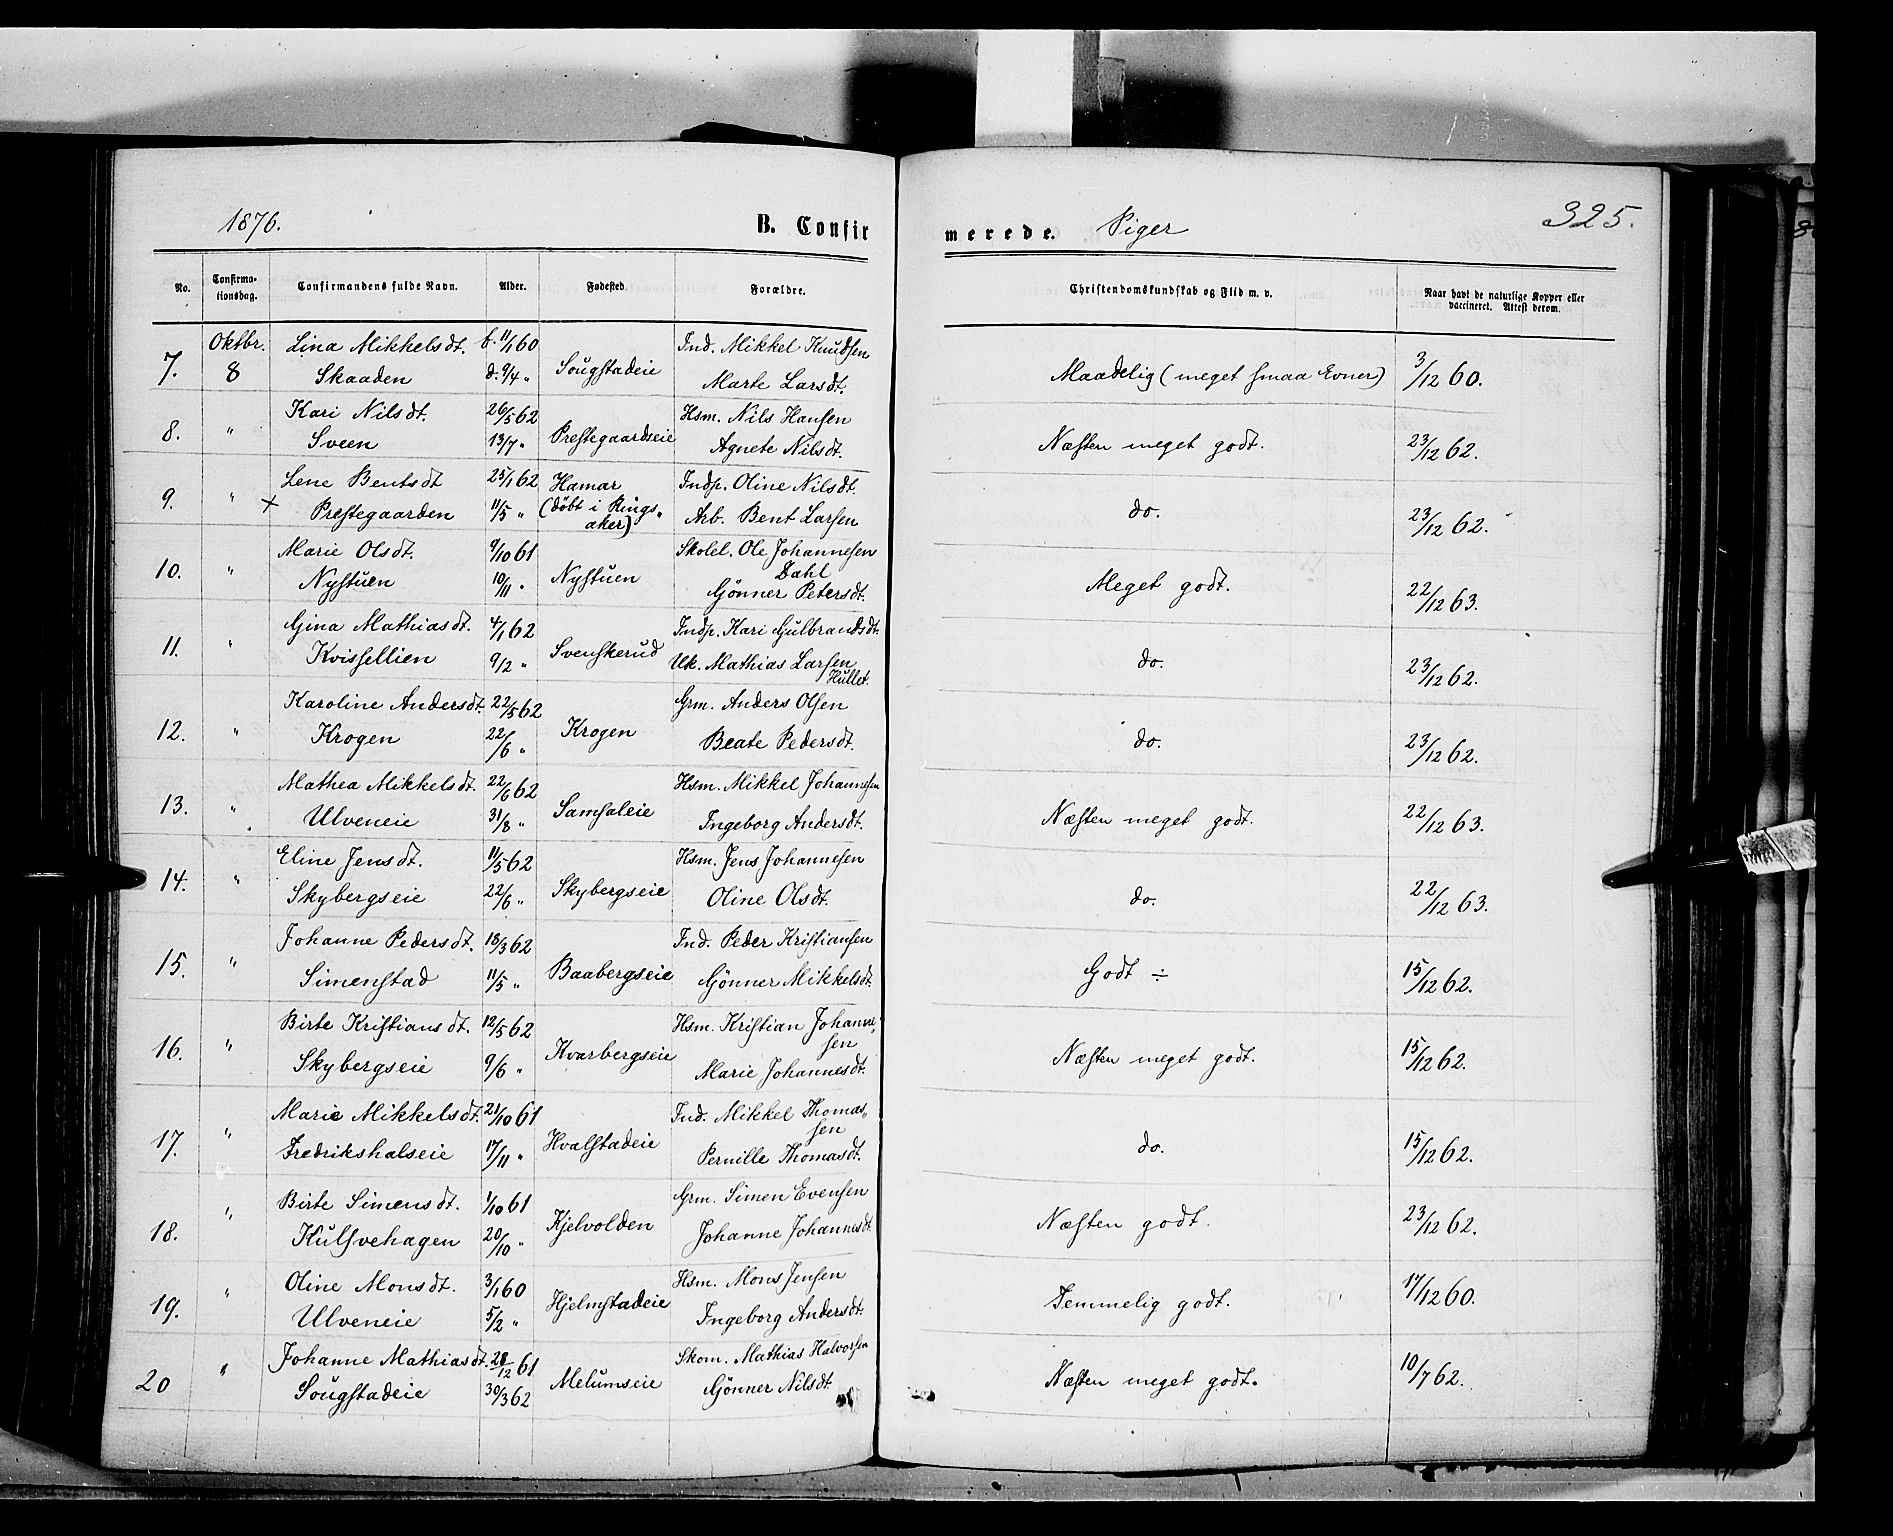 1876.
B. Confirmerede. Piger
325.
No. Confirmationsdag. Confirmandens fulde Navn. Alder. Fødested. Forældre. Christendomskundskab og Flid m. v. Naar havt de naturlige Kopper eller vaccineret. Attest derom.
Oktbr. Lina Mikkelsdt. f. 11/1 60 Ind. Mikkel Knudsen
7. 8 Skaaden d. 9/4 " Sougstadeie Marte Larsdt. Maadelig (meget smaa Evner) 3/12 60.
Kari Nilsdt. 26/5 62 Hsm. Nils Hansen
8. " Sveen 13/7 " Prestegaardseie Agnete Nilsdt. Næsten meget godt. 23/12 62.
Lene Bentsdt 25/1 62 Hamar Indp. Oline Nilsdt.
9. " × Prestegaarden 11/5 " (døbt i Ringsaker) Arb. Bent Larsen do. 23/12 62.
Marie Olsdt. 9/10 61 Skolel. Ole Johannesen Dahl
10. " Nystuen 10/11 " Nystuen Gönner Petersdt. Meget godt. 22/12 63.
Gina Mathiasdt. 4/1 62 Indp. Kari Gulbrandsdt.
11. " Kvissellien 9/2 " Svenskerud Uk. Mathias Larsen Hullet. do. 23/12 62.
Karoline Andersdt. 22/5 62 Grm. Anders Olsen
12. " Krogen 22/6 " Krogen Beate Pedersdt. do. 23/12 62.
Mathea Mikkelsdt. 22/6 62 Hsm. Mikkel Johannesen
13. " Ulveneie 31/8 " Samsaleie Ingeborg Andersdt. Næsten meget godt. 22/12 63.
Eline Jensdt. 11/5 62 Hsm. Jens Johannesen
14. " Skybergseie 22/6 " Skybergseie Oline Olsdt. do. 22/12 63.
Johanne Pedersdt. 18/3 62 Ind. Peder Kristiansen
15. " Simenstad 11/5 " Baabergseie Gönner Mikkelsdt. Godt ÷ 15/12 62.
Birte Kristiansdt. 12/5 62 Hsm. Kristian Johannesen
16. " Skybergseie 9/6 " Kvarbergseie Marie Johannesdt. Næsten meget godt. 15/12 62.
Marie Mikkelsdt. 21/10 61 Ind. Mikkel Thomassen
17. " Fredrikshalseie 17/11 " Hvalstadeie Pernille Thomasdt. do. 15/12 62.
Birte Simensdt. 1/10 61 Grm. Simen Evensen
18. " Kulsvehagen 20/10 " Kjelvolden Johanne Johannesdt. Næsten godt. 23/12 62.
Oline Monsdt. 3/1 60 Hsm. Mons Jensen
19. " Ulveneie 5/2 " Hjelmstadeie Ingeborg Andersdt. Temmelig godt. 17/12 60.
Johanne Mathiasdt. 28/12 61 Skom. Mathias Halvorsen
20 " Sougstadeie 30/3 62 Melumseie Gönner Nilsdt. Næsten meget godt. 10/7 62.